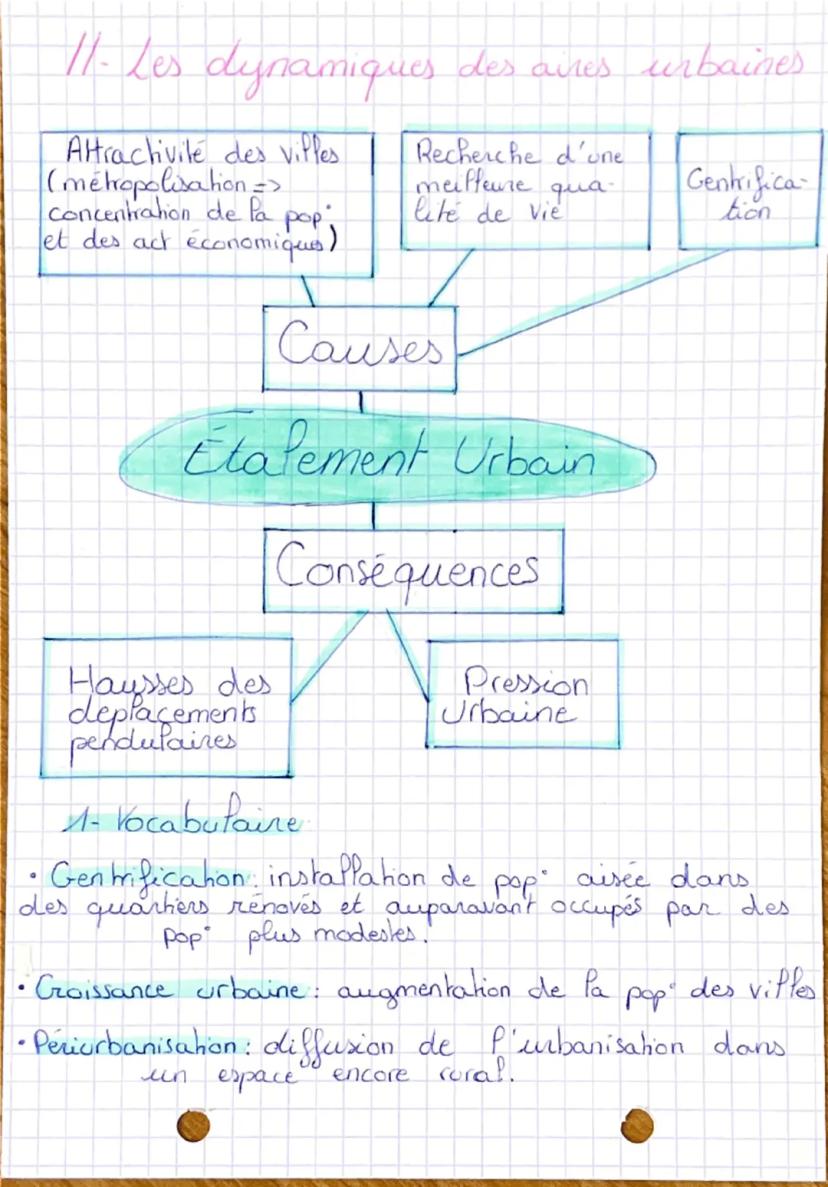 II- Les dynamiques des aires urbaines
Attractivité des villes
(métropolisation =>
concentration de la pop°
et des act économiques)
Recherche d'une
meilleure qua-
lité de vie
Gentrifica-
tion
Causes
Étalement Urbain
Conséquences
Hausses des
deplacements
pendulaires
Pression
Urbaine
1- Vocabulaire
• Gentrification: installation de pop° aisée dans
des quartiers rénovés et auparavant occupés par des
pop° plus modestes.
• Croissance urbaine: augmentation de la pop° des villes
• Périurbanisation: diffusion de l'urbanisation dans
un espace encore rural.